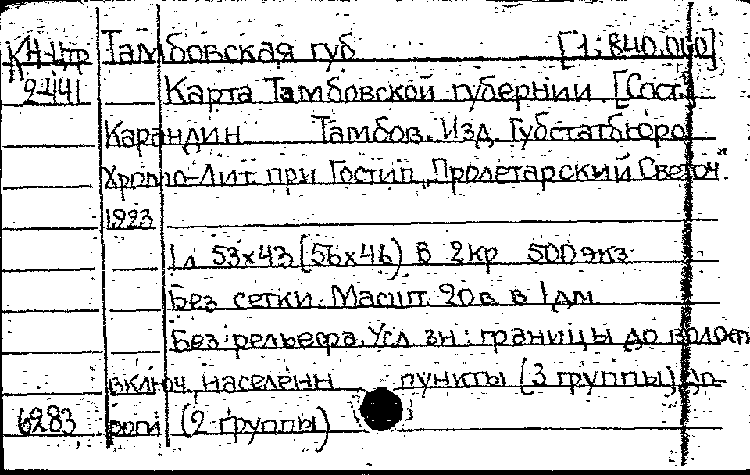 КН-Цтр Тамбовская губ [1:840.000]
2441 Карта Тамбовской губернии. [Сост.]
Карандин Тамбов. Изд. Губстатбюро
Хромо-Лит. при Гостип. „Пролетарский Светоч"
1923
1 л 53х43 (56х46) в 2кр 500 экз
Без сетки. Масшт. 20 в. в 1 дм
Без рельефа. Усл. зн: границы до волост
включ., населенн пункты (3 группы) до-
6283 роги (2 группы)